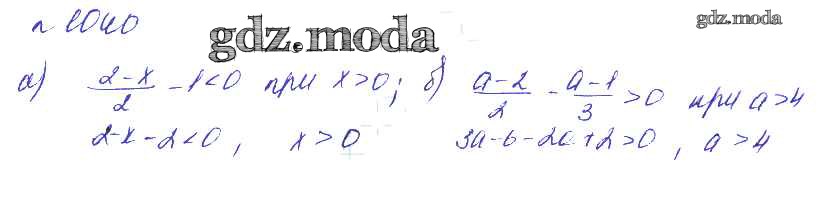 n 1040
gdz.moda
gdz.moda
а) (2-x)/2 - 1 < 0 при x > 0; б) (a-2)/2 - (a-1)/3 > 0 при a > 4
2-x-2<0, x > 0 3a-6-2a+2>0, a > 4